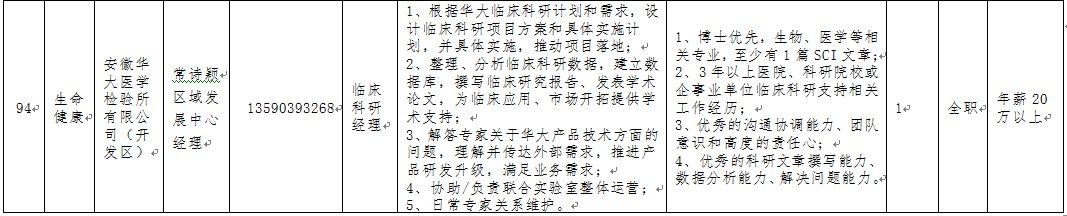 94
生命
健康
安徽华
大医学
检验所
有限公
司（开
发区）
常诗颖
区域发
展中心
经理
13590393268
临床
科研
经理
1、根据华大临床科研计划和需求，设
计临床科研项目方案和具体实施计
划，并具体实施，推动项目落地；
2、整理、分析临床科研数据，建立数
据库，撰写临床研究报告、发表学术
论文，为临床应用、市场开拓提供学
术支持；
3、解答专家关于华大产品技术方面的
问题，理解并传达外部需求，推进产
品研发升级，满足业务需求；
4、协助/负责联合实验室整体运营；
5、日常专家关系维护。
1、博士优先，生物、医学等相
关专业，至少有 1 篇 SCI 文章；
2、3 年以上医院、科研院校或
企事业单位临床科研支持相关
工作经历；
3、优秀的沟通协调能力、团队
意识和高度的责任心；
4、优秀的科研文章撰写能力、
数据分析能力、解决问题能力。
1
全职
年薪 20
万以上